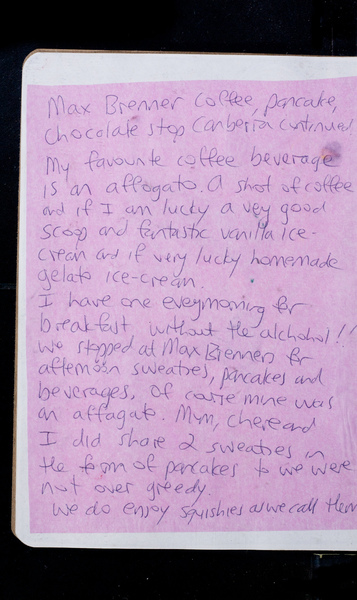 Max Brenner coffee, pancake,
chocolate stop Canberra continued
My favourite coffee beverage
is an affogato. A shot of coffee
and if I am lucky a very good
scoop and fantastic vanilla ice-
cream and if very lucky homemade
gelato ice-cream.
I have one everymorning for
breakfast without the alchohol!!
we stopped at Max Brenners for
afternoon sweaties, pancakes and
beverages, of course mine was
an affagato. Mum, chere and
I did share 2 sweaties in
the form of pancakes so we were
not over greedy.
we do enjoy squishies as we call them